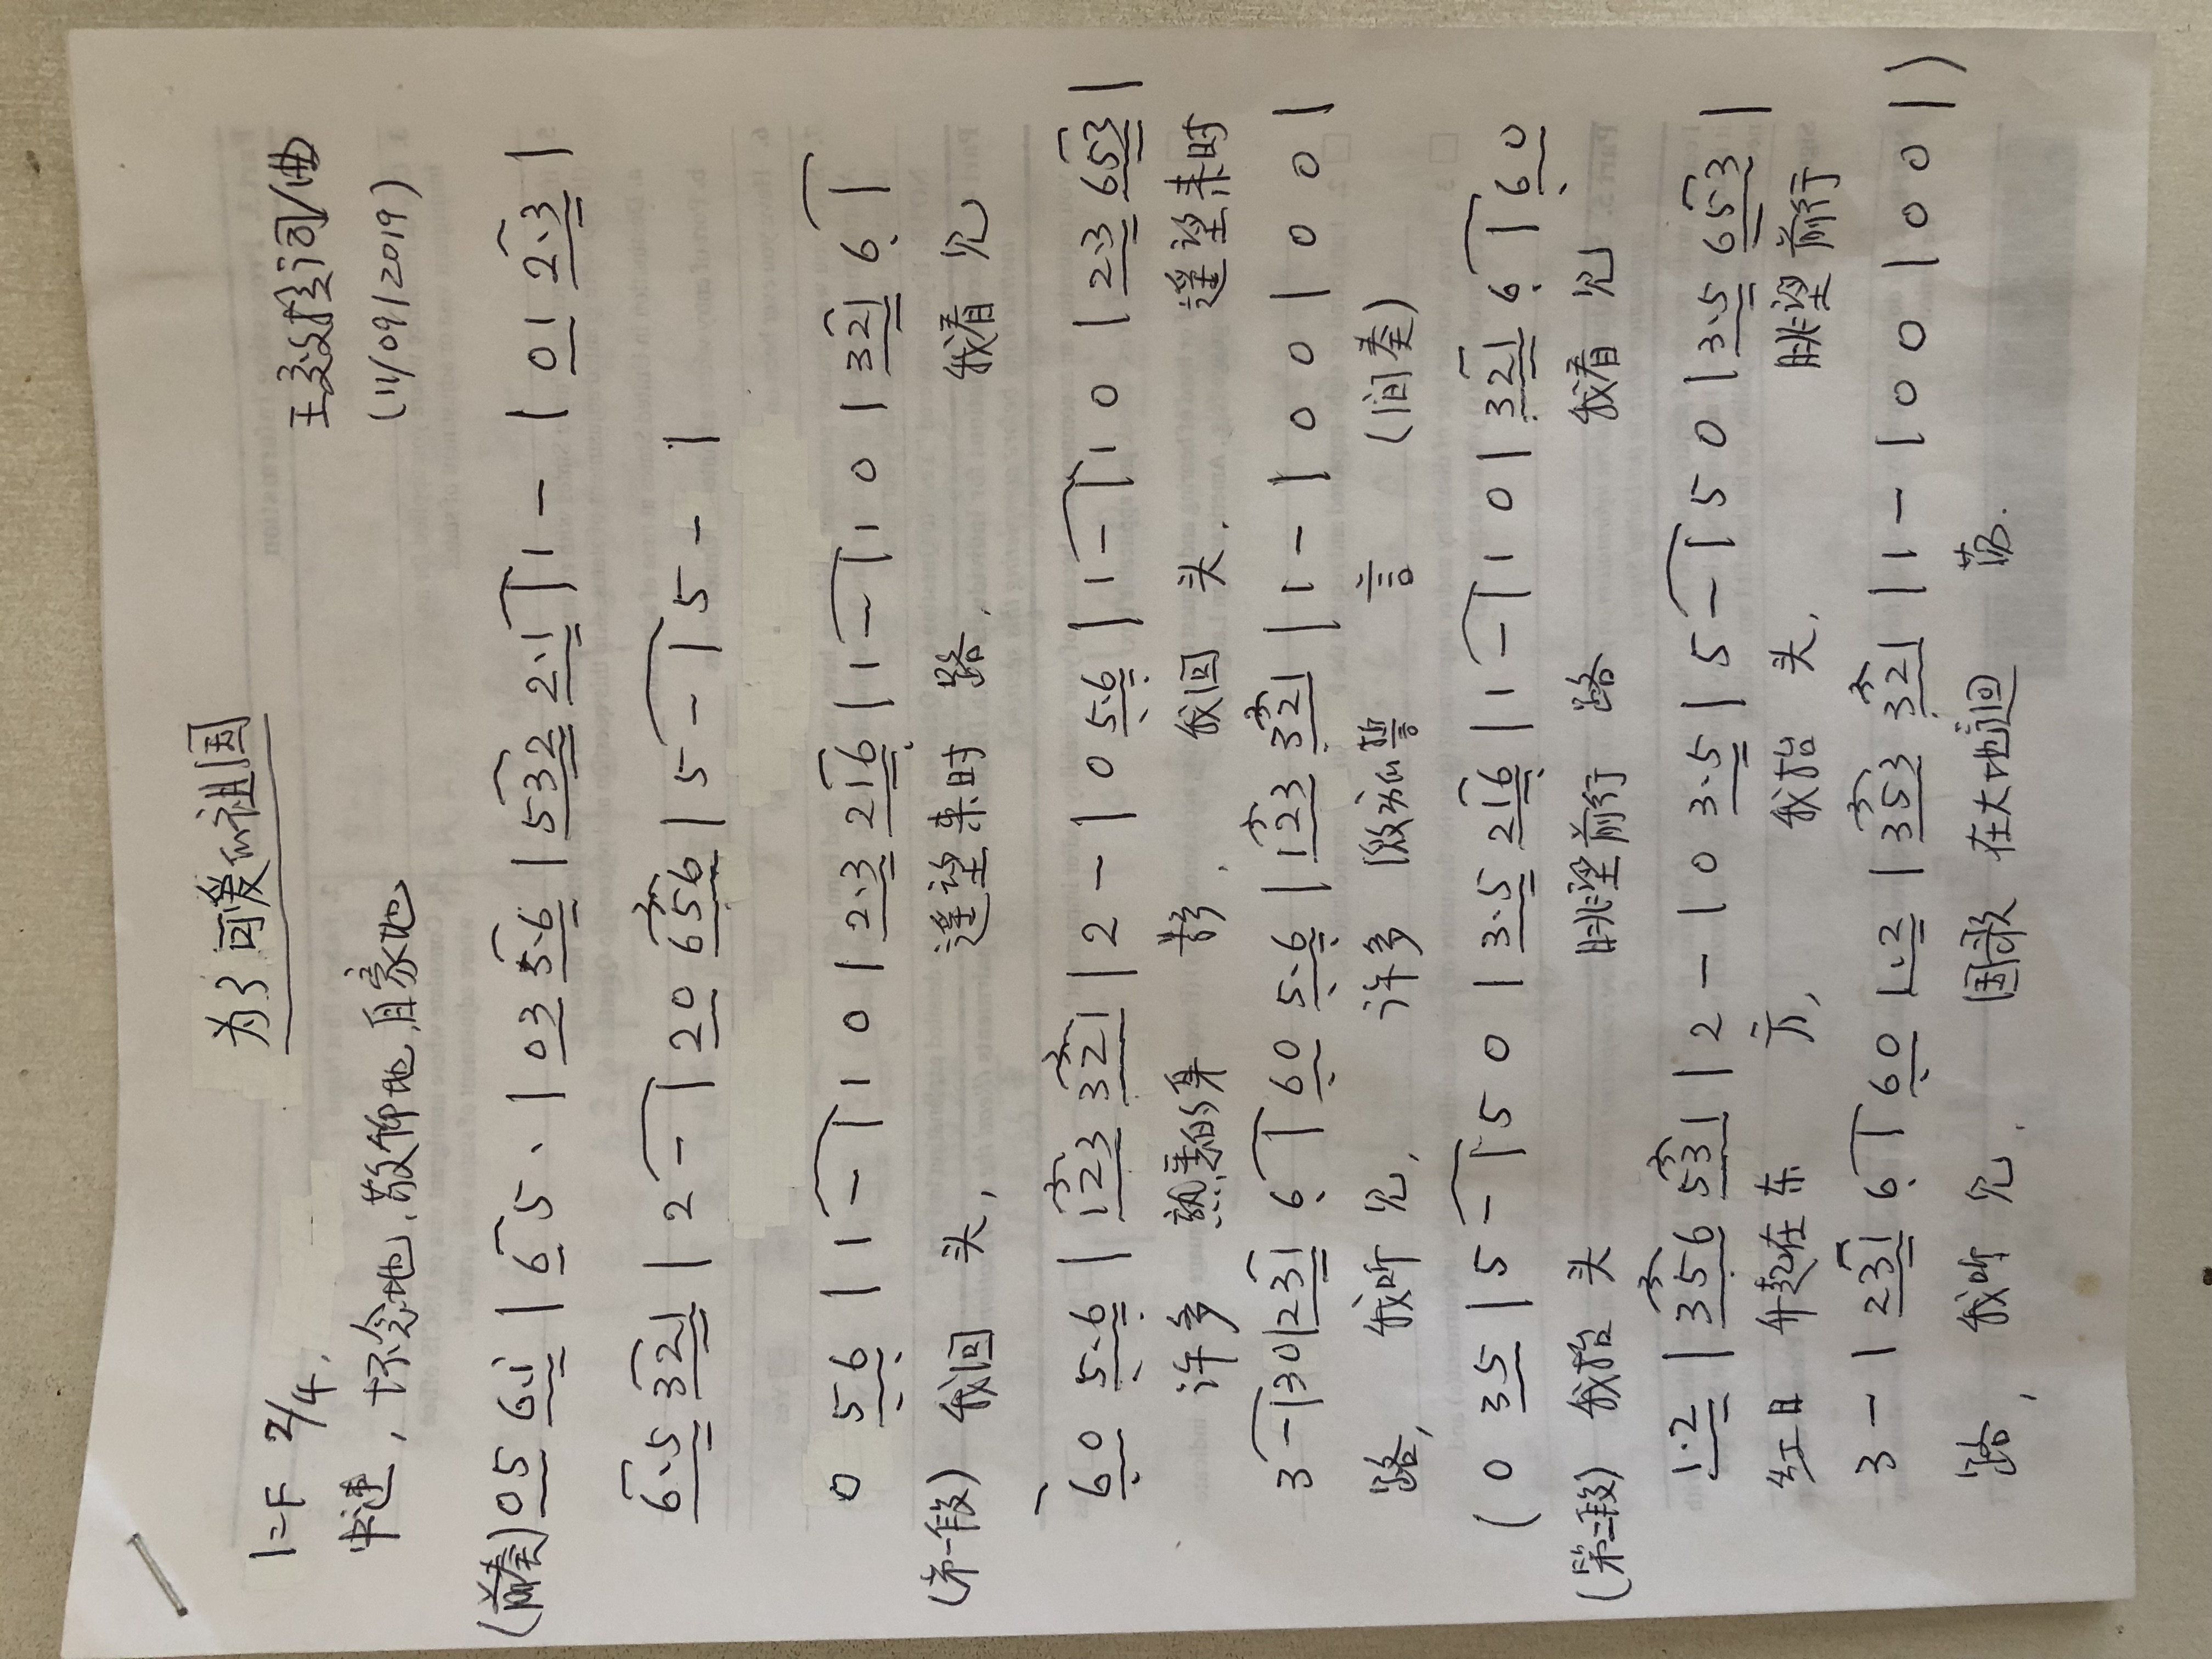 为了可爱的祖国
1=F 2/4.
王效挺词/曲
中速，怀念地，敬仰地，自豪地
(11/09/2019)
(前奏) 05 6.i | 6 5 . | 03 5.6 | 532 2.1 | 1 - | 01 2.3 |
6.5 321 | 2 - | 20 656 | 5 - | 5 - |
0 56 | 1 - | 1 0 | 2.3 216 | 1 - | 1 0 | 321 6 |
(第一段) 我回 头， 遥望来时 路， 我看 见
60 5.6 | 123 321 | 2 - | 0 5.6 | 1 - | 1 0 | 2.3 653 |
许多 熟悉的身 影， 我回 头， 遥望来时
3 - | 30 | 231 6 | 60 5.6 | 123 321 | 1 - | 0 0 | 0 0 |
路， 我听 见， 许多 激动的誓 言 (间奏)
( 0 35 | 5 - | 5 0 | 3.5 216 | 1 - | 1 0 | 321 6 | 60
(第二段) 我抬 头 眺望前行 路 我看 见
1.2 | 356 531 | 2 - | 0 3.5 | 5 - | 5 0 | 3.5 653 |
红日 升起在东 方， 我抬 头， 眺望前行
3 - | 231 6 | 60 1.2 | 353 321 | 1 - | 0 0 | 0 0 | )
路， 我听 见， 国歌 在大地迴 荡.